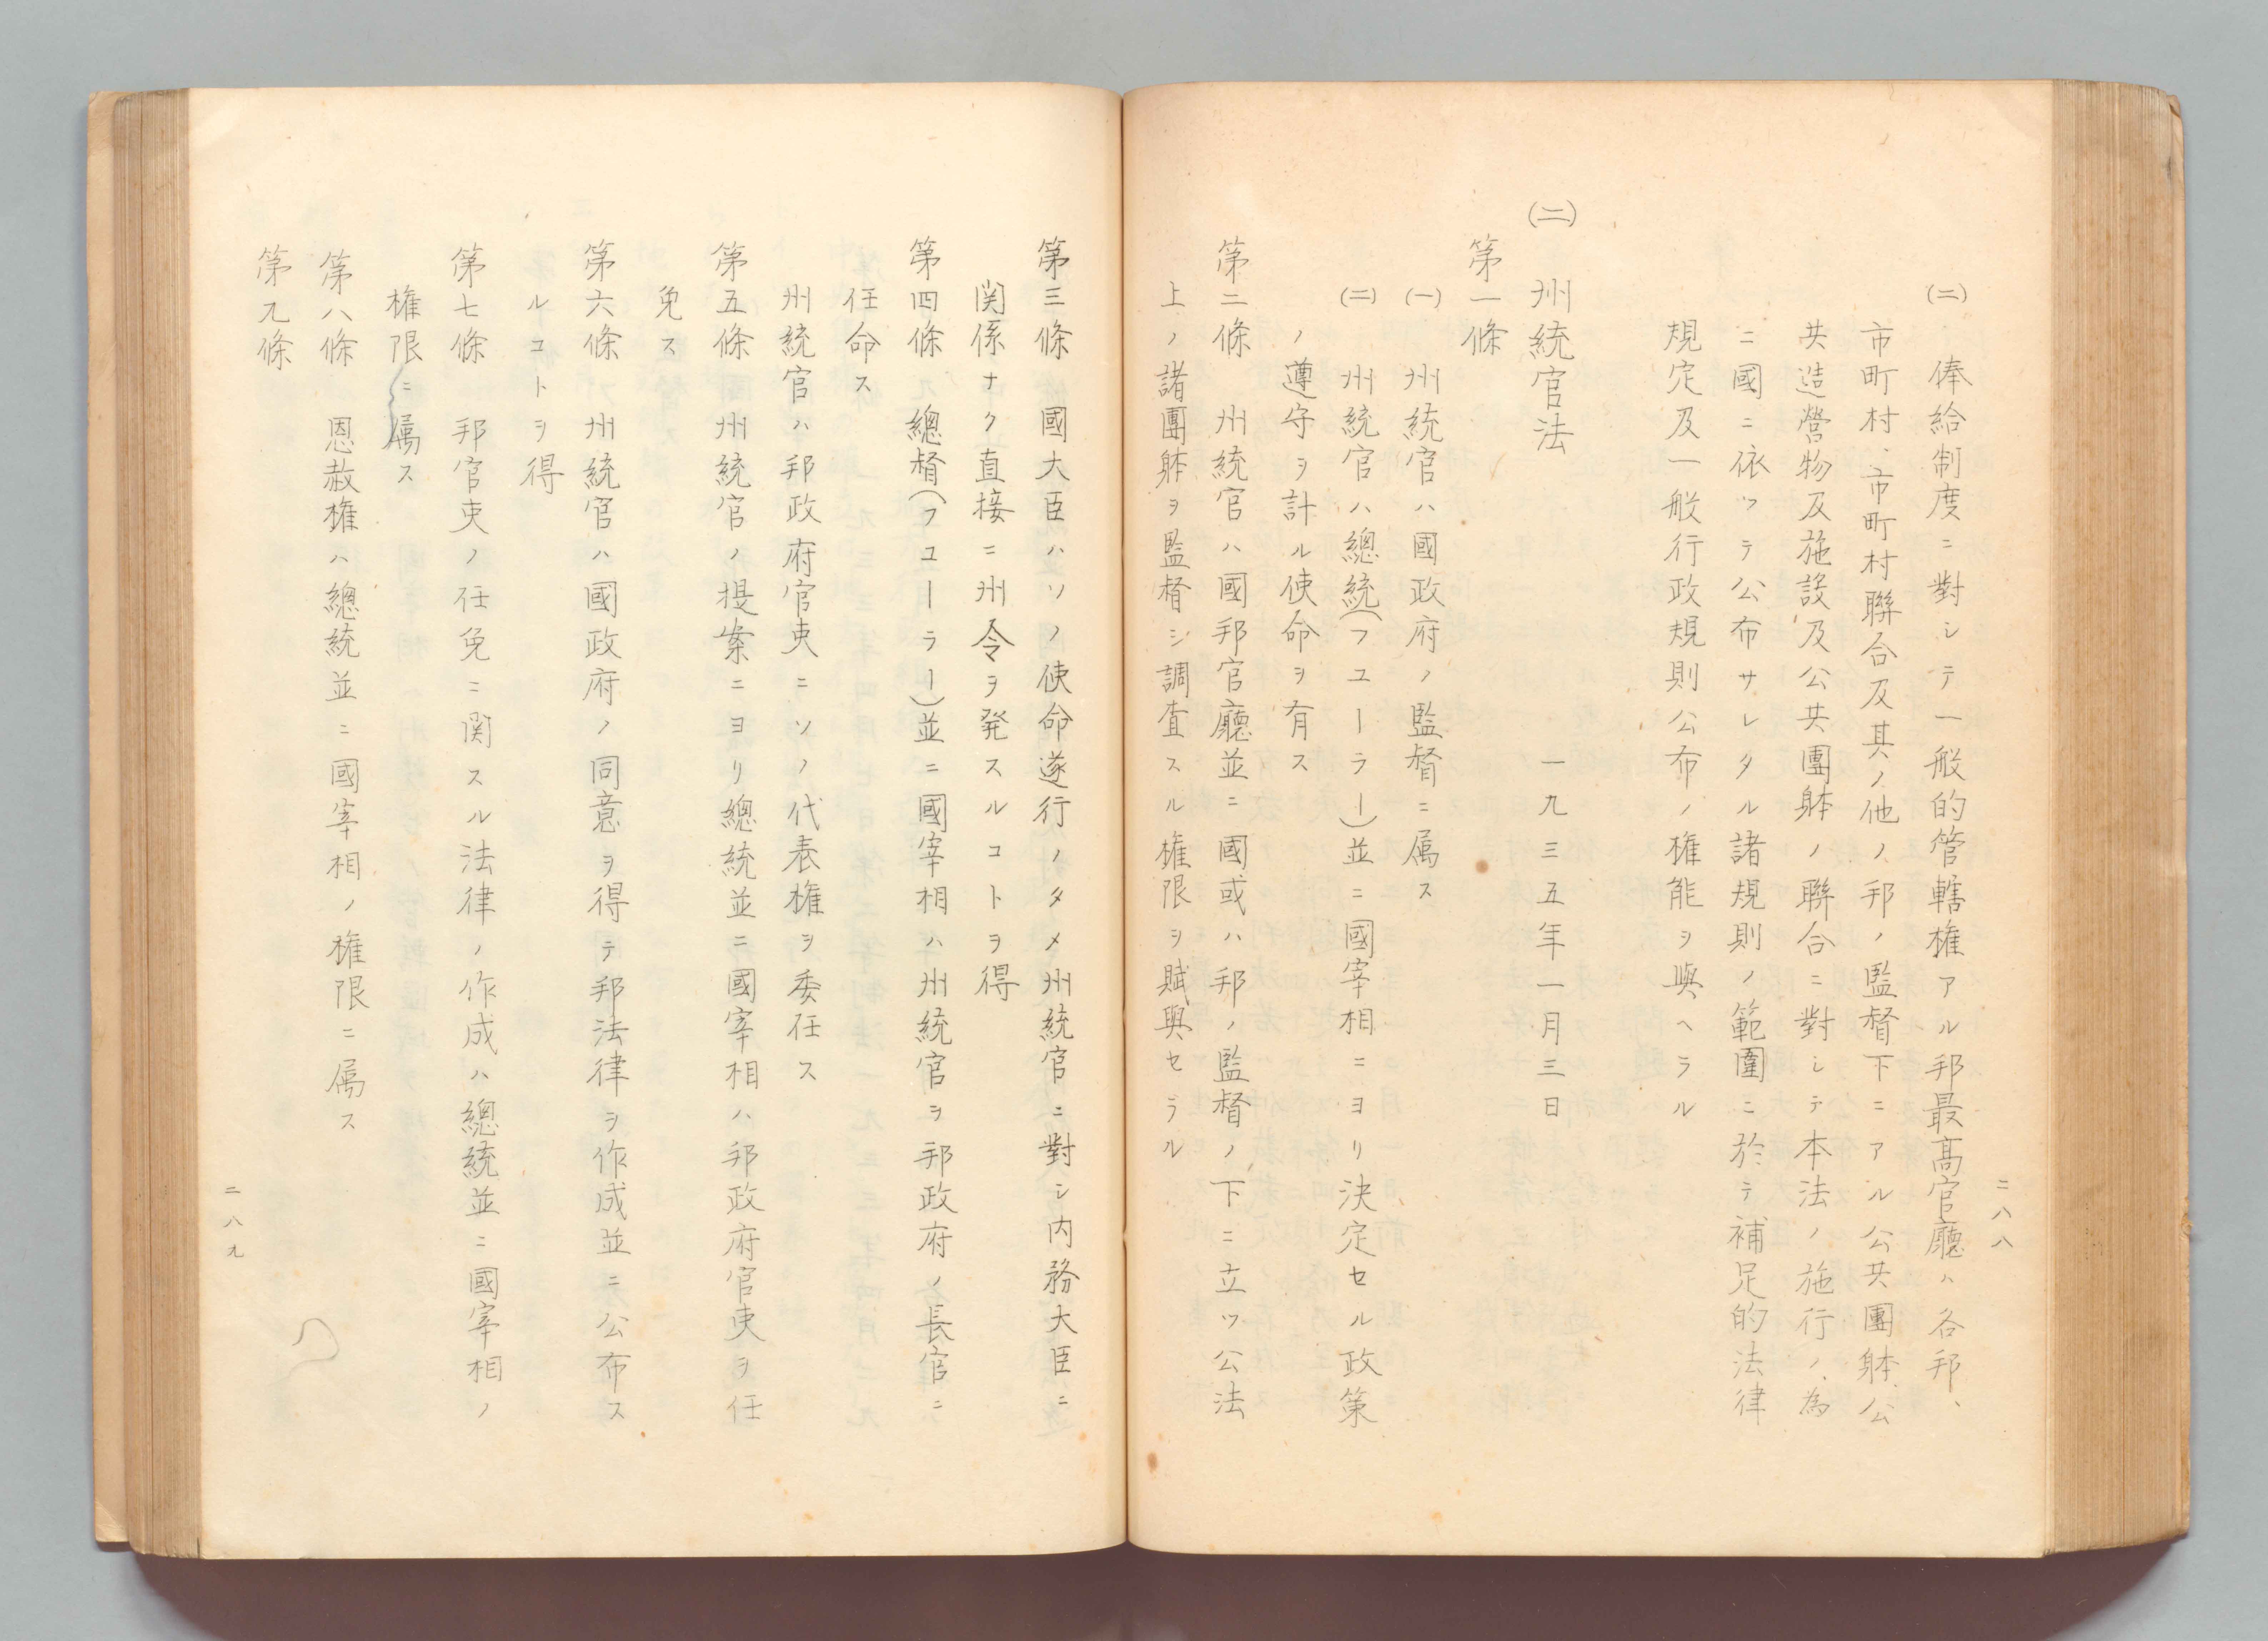 二八八
(二)　俸給制度ニ對シテ一般的管轄權アル邦最高官廳ハ各邦、
市町村、市町村聯合及其ノ他ノ邦ノ監督下ニアル公共團躰公
共造營物及施設及公共團躰ノ聯合ニ對シテ本法ノ施行ノ為
ニ國ニ依ツテ公布サレタル諸規則ノ範圍ニ於テ補足的法律
規定及一般行政規則公布ノ權能ヲ與ヘラル
(二)　州統官法　一九三五年一月三日
第一條
(一)　州統官ハ國政府ノ監督ニ属ス
(二)　州統官ハ總統(フユーラー)並ニ國宰相ニヨリ決定セル政策
ノ遵守ヲ計ル使命ヲ有ス
第二條　州統官ハ國邦官廳並ニ國或ハ邦ノ監督ノ下ニ立ツ公法
上ノ諸團躰ヲ監督シ調査スル權限ヲ賦與セラル
第三條　國大臣ハソノ使命遂行ノタメ州統官ニ對シ内務大臣ニ
関係ナク直接ニ州令ヲ発スルコトヲ得
第四條　總督(フユーラー)並ニ國宰相ハ州統官ヲ邦政府ノ長官ニ
任命ス
州統官ハ邦政府官吏ニソノ代表權ヲ委任ス
第五條　州統官ノ提案ニヨリ總統並ニ國宰相ハ邦政府官吏ヲ任
免ス
第六條　州統官ハ國政府ノ同意ヲ得テ邦法律ヲ作成並ニ公布ス
ルコトヲ得
第七條　邦官吏ノ任免ニ関スル法律ノ作成ハ總統並ニ國宰相ノ
權限ニ属ス
第八條　恩赦權ハ總統並ニ國宰相ノ權限ニ属ス
第九條
二八九